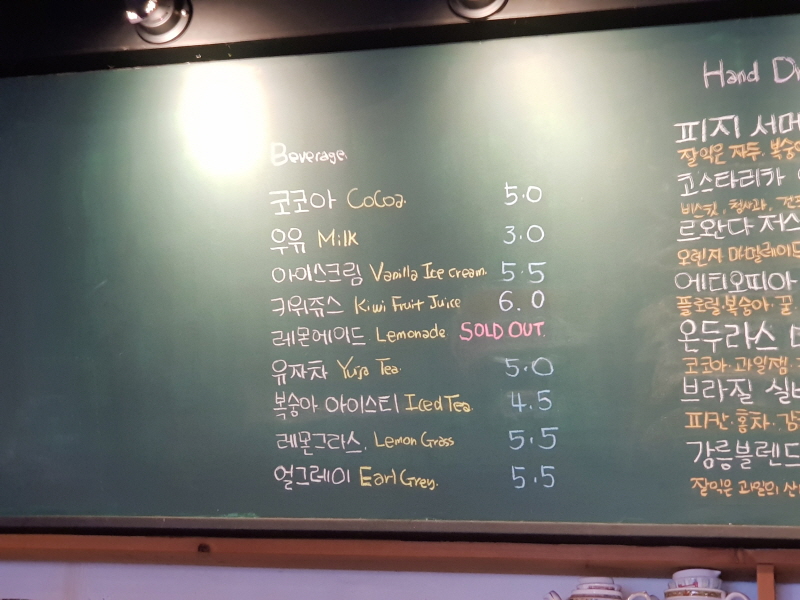 Beverage
코코아 Cocoa 5.0
우유 Milk 3.0
아이스크림 Vanilla Ice cream 5.5
키위쥬스 Kiwi Fruit Juice 6.0
레몬에이드 Lemonade SOLD OUT.
유자차 Yuja Tea 5.0
복숭아 아이스티 Iced Tea 4.5
레몬그라스. Lemon Grass 5.5
얼그레이 Earl Grey. 5.5
Hand
피지
잘익은 자두. 복숭아
코스타리카
비스킷. 청사과.
르완다
오렌지 마말레이드
에티오피아
플로럴. 복숭아. 꿀
온두라스
코코아. 과일잼.
브라질
피칸. 홍차.
강릉블렌드
잘익은 과일의